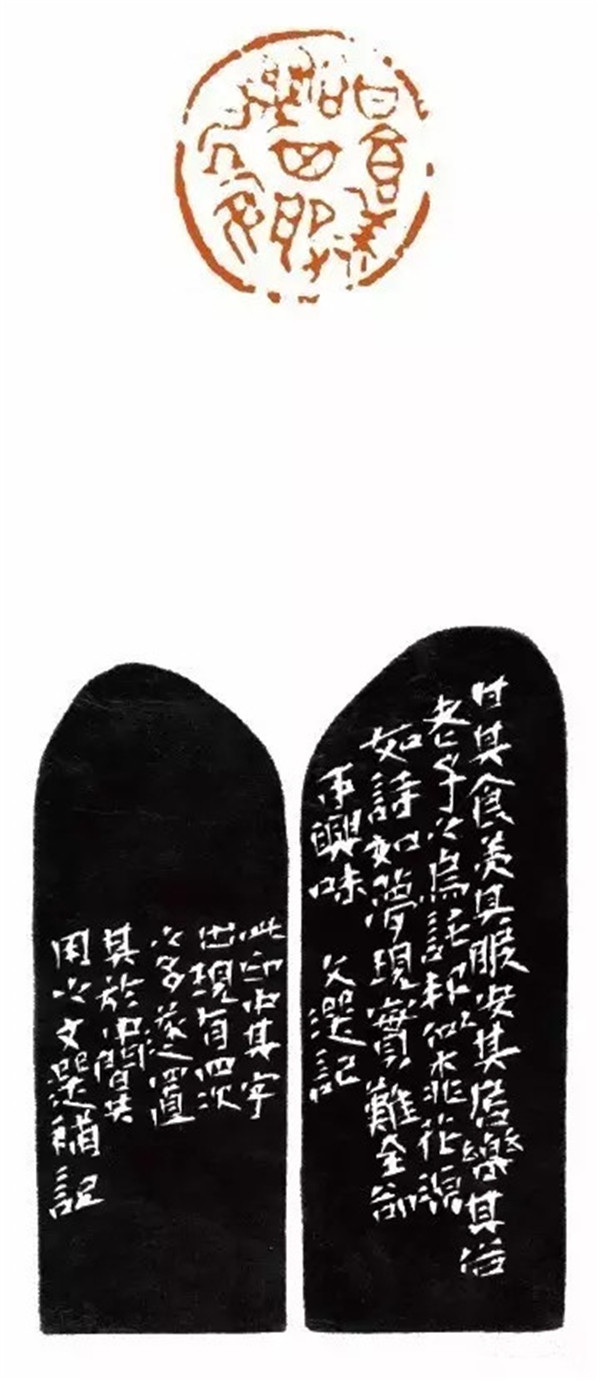 甘其食美其服安其居樂其俗
老子之烏託邦似桃花源
如詩如夢現實難全
興味 文選記
此印中其字
出現有四次
之多遂置
其於中間共
用之文選補記